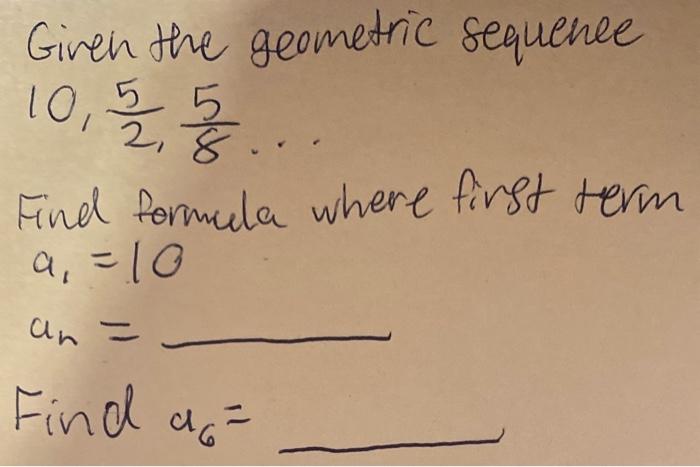 Given the geometric sequence
10, 5/2, 5/8 ...
Find formula where first term
a₁ = 10
aₙ = ________
Find a₆ = ________